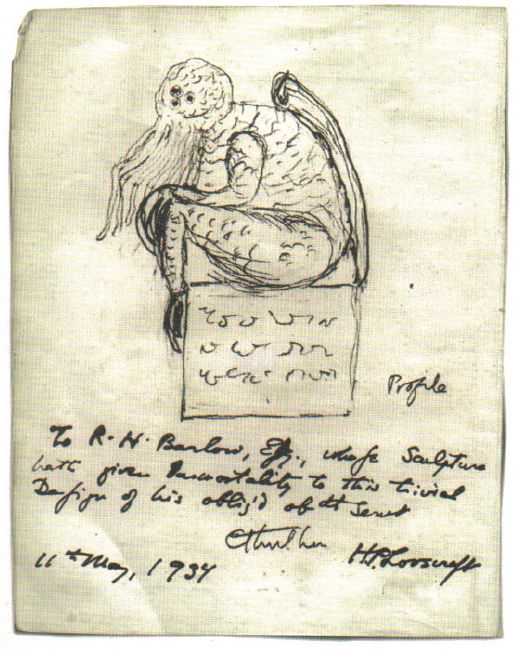 Profile
To R. H. Barlow, Esq., whose Sculpture
hath given Immortality to this trivial
Design of his oblig'd obt Servt
Cthulhu
H P Lovecraft
11th May, 1934